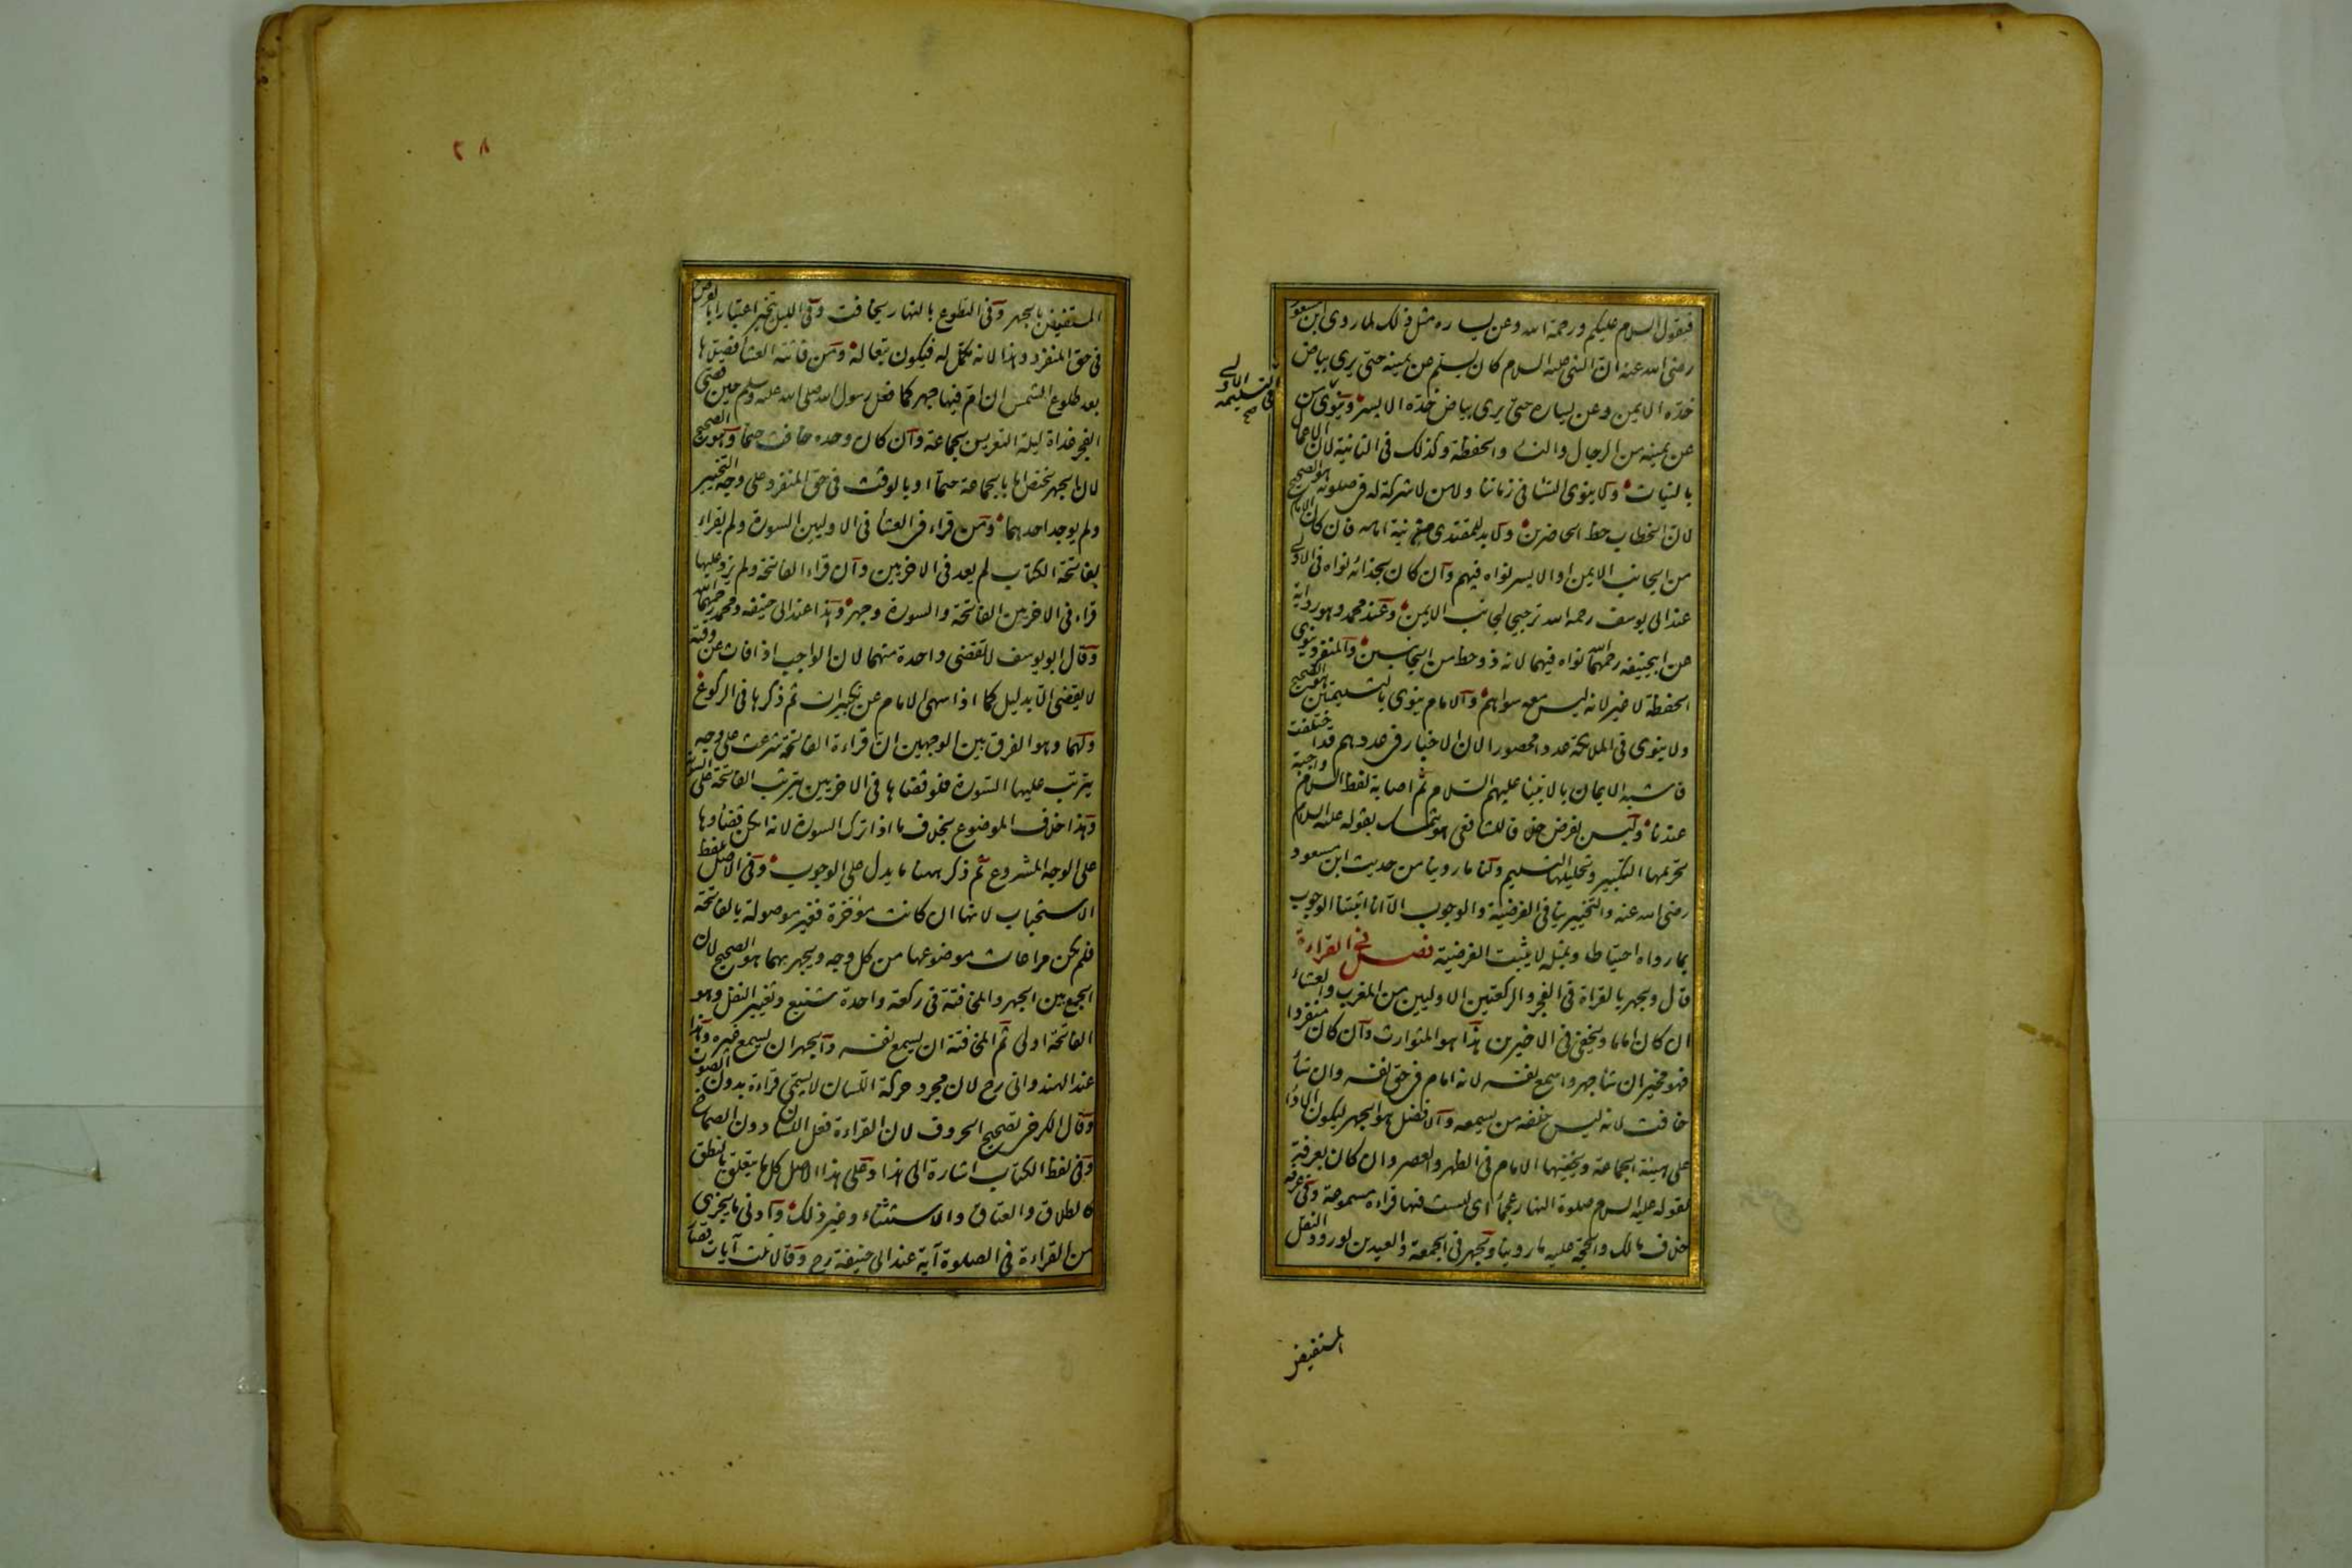 فيقول السلام عليكم ورحمة الله وعن يساره مثل ذلك لما روى ابن مسعود
رضى الله عنه ان النبى عليه السلام كان يسلم عن يمينه حتى يرى بياض
خدّه الايمن وعن يساره حتى يرى بياض خدّه الايسر وينوى من
فى التسليمة الاولى صح
عن يمينه من الرجال والنسا والحفظة وكذلك فى الثانية لان الاعمال
بالنيات ولا ينوى النسا فى زماننا ولا من لا شركة له فى صلوته هو الصحيح
لان الخطاب حظ الحاضرين ولا بد للمقتدى من نية امامه فان كان الامام
من الجانب الايمن او الايسر نواه فيهم وان كان بحذائه نواه فى الاولى
عند ابى يوسف رحمه الله ترجيحا لجانب الايمن وعند محمد وهو رواية
عن ابيحنيفه رحمهما الله نواه فيهما لانه ذو حظ من الجانبين والمنفرد ينوى
الحفظة لا غير لانه ليس معه سواهم والامام ينوى بالتسليمتين هو الصحيح
ولا ينوى فى الملائكة عددا محصورا لان الاخبار فى عددهم قد اختلفت
فاشبه الايمان بالانبيا عليهم السلام ثم اصابة لفظ السلام واجبة
عندنا وليس بفرض خلافا للشافعى هو يتمسك بقوله عليه السلام
تحريمها التكبير وتحليلها التسليم ولنا ما روينا من حديث ابن مسعود
رضى الله عنه والتخيير ينافى الفرضية والوجوب الا انا اثبتنا الوجوب
بما رواه احتياطا وبمثله لا يثبت الفرضية فصل فى القراءة
قال ويجهر بالقراة فى الفجر والركعتين الاوليين من المغرب والعشاء
ان كان اماما ويخفى فى الاخيرين هذا هو المتوارث وان كان منفردا
فهو مخير ان شا جهر واسمع نفسه لانه امام فى حق نفسه وان شا
خافت لانه ليس خلفه من يسمعه والافضل هو الجهر ليكون الاداء
على هيئة الجماعة ويخفيها الامام فى الظهر والعصر وان كان بعرفة
لقوله عليه السلام صلوة النهار عجما اى ليست فيها قراءة مسموعة وفى عرفة
خلاف مالك والحجة عليه ما روينا ويجهر فى الجمعة والعيدين لورود النقل
المستفيض
٢٨
المستفيض بالجهر وفى التطوع بالنهار يخافت وفى الليل يتخير اعتبارا بالفرض
فى حق المنفرد وهذا لانه مكمل له فيكون تبعا له ومن فاتته العشا فصلّاها
بعد طلوع الشمس ان امّ فيها جهر كما فعل رسول الله صلى الله عليه وسلم حين قضى
الفجر غداة ليلة التعريس بجماعة وان كان وحده خافت حتما وهو الصحيح
لان الجهر يختص اما بالجماعة حتما او بالوقت فى حق المنفرد على وجه التخيير
ولم يوجد احدهما ومن قراء فى العشا فى الاوليين السورة ولم يقراء
بفاتحة الكتاب لم يعد فى الاخريين وان قراء الفاتحة ولم يزد عليها
قراء فى الاخريين الفاتحة والسورة وجهر وهذا عند ابى حنيفه ومحمد رحمهما الله
وقال ابو يوسف لا يقضى واحدة منهما لان الواجب اذا فات عن وقته
لا يقضى الا بدليل كما اذا سهى الامام عن تكبيرات ثم ذكرها فى الركوع
ولهما وهو الفرق بين الوجهين ان قراءة الفاتحة شرعت على وجه
يترتب عليها السورة فلو قضاها فى الاخريين يترتب الفاتحة على السورة
وهذا خلاف الموضوع بخلاف ما اذا ترك السورة لانه امكن قضاوها
على الوجه المشروع ثم ذكر ههنا ما يدل على الوجوب وفى الاصل بلفظ
الاستحباب لانها ان كانت مؤخرة فغير موصولة بالفاتحة
فلم يكن مراعات موضوعها من كل وجه ويجهر بهما هو الصحيح لان
الجمع بين الجهر والمخافتة فى ركعة واحدة شنيع وتغيير النفل وهو
الفاتحة اولى ثم المخافتة ان يسمع نفسه والجهر ان يسمع غيره وهذا
عند الهندوانى رح لان مجرد حركة اللسان لا يسمى قراءة بدون الصوت
وقال الكرخى تصحيح الحروف لان القراءة فعل اللسان دون الصماخ
وفى لفظ الكتاب اشارة الى هذا وعلى هذا الاصل كل ما يتعلق بالنطق
كالطلاق والعتاق والاستثناء وغير ذلك وادنى ما يجزى
من القراءة فى الصلوة آية عند ابى حنيفة رح وقالا ثلث آيات قصار